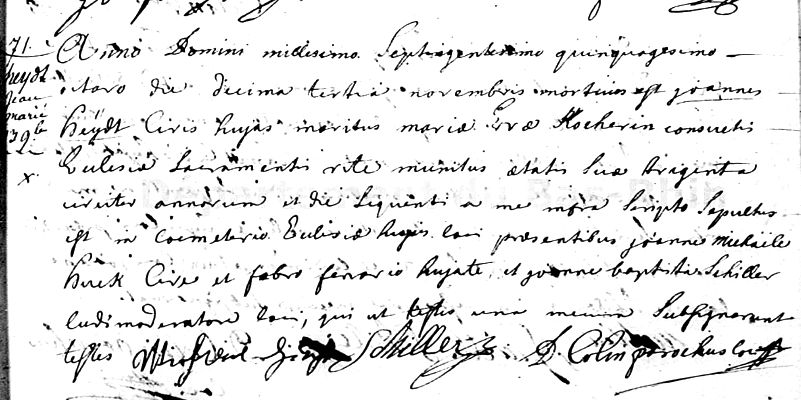 71.
heydt
jean
marié
39
x
Anno Domini millesimo Septingentesimo quinquagesimo —
octavo die decima tertia novembris mortuus est joannes
heydt Civis hujas maritus mariæ Evæ Kocherin consuetis
Eclesiæ Sacramentis rite munitus ætatis Suæ trigenta
circiter annorum et die Sequenti a me infra Scripto Sepultus
est in Coemeterio Eclesiæ hujus loci præsentibus joanne michaele
huck Cive et fabro ferrario hujate, et joanne baptista Schiller
ludimoderatore loci, qui ut testes una mecum Subsignarunt
testes Michael Schiller D. Colin parochus loci